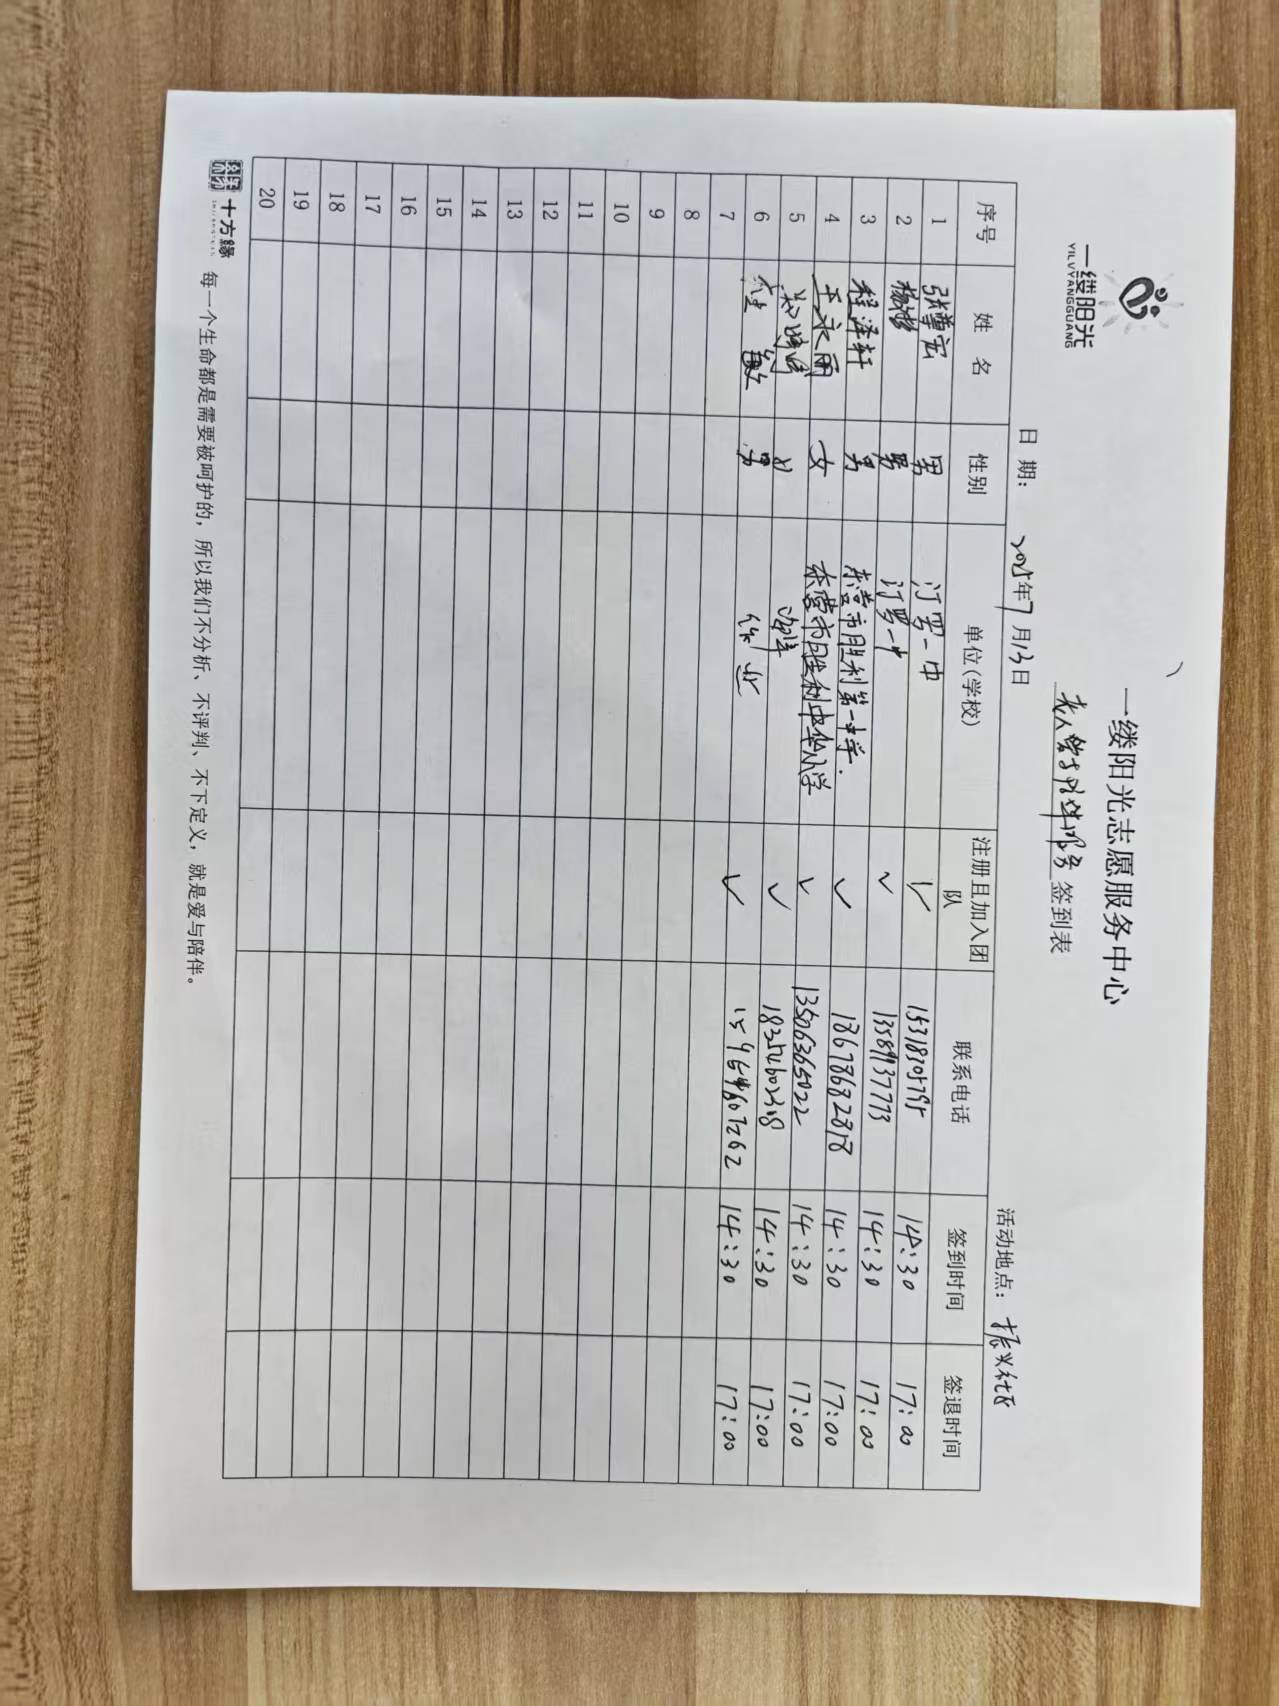 一缕阳光
YILVYANGGUANG
一缕阳光志愿服务中心
签到表
日 期： 2025年7月13日 活动地点： 振兴社区
序号 姓 名 性别 单位（学校） 注册且加入团队 联系电话 签到时间 签退时间
1 男 一中 ✓ 15318305795 14:30 17:00
2 男 一中 ✓ 13589937773 14:30 17:00
3 程泽轩 男 东营市胜利第一中学. ✓ 18678682878 14:30 17:00
4 王永丽 女 东营市胜利中华小学 ✓ 13506365022 14:30 17:00
5 女 ✓ 14:30 17:00
6 男 ✓ 14:30 17:00
7
8
9
10
11
12
13
14
15
16
17
18
19
20
十方缘 每一个生命都是需要被呵护的，所以我们不分析、不评判、不下定义，就是爱与陪伴。